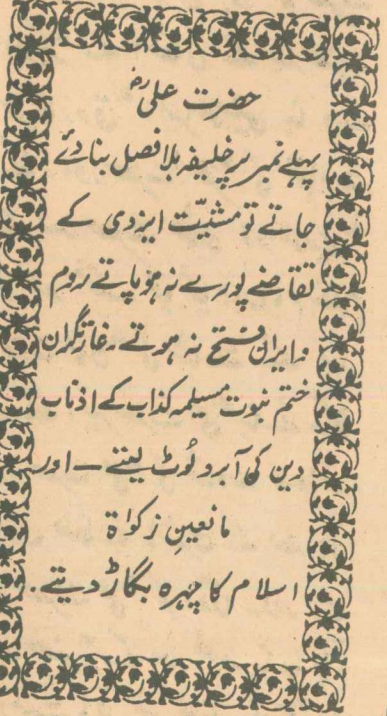 حضرت علیؓ
پہلے نمبر پر خلیفہ بلا فصل بنائے
جاتے تو مشیّت ایزدی کے
تقاضے پورے نہ ہو پاتے روم
و ایران فتح نہ ہوتے۔ غارتگران
ختم نبوت مسیلمہ کذاب کے اذناب
دین کی آبرو لُوٹ لیتے — اور
مانعینِ زکواۃ
اسلام کا چہرہ بگاڑ دیتے۔